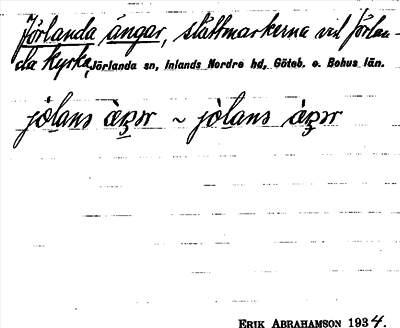 Jörlanda ängar, slåttmarkerna vid Jörlan-
da kyrka, Jörlanda sn, Inlands Nordre hd, Göteb. o. Bohus län.
ERIK ABRAHAMSON 1934.